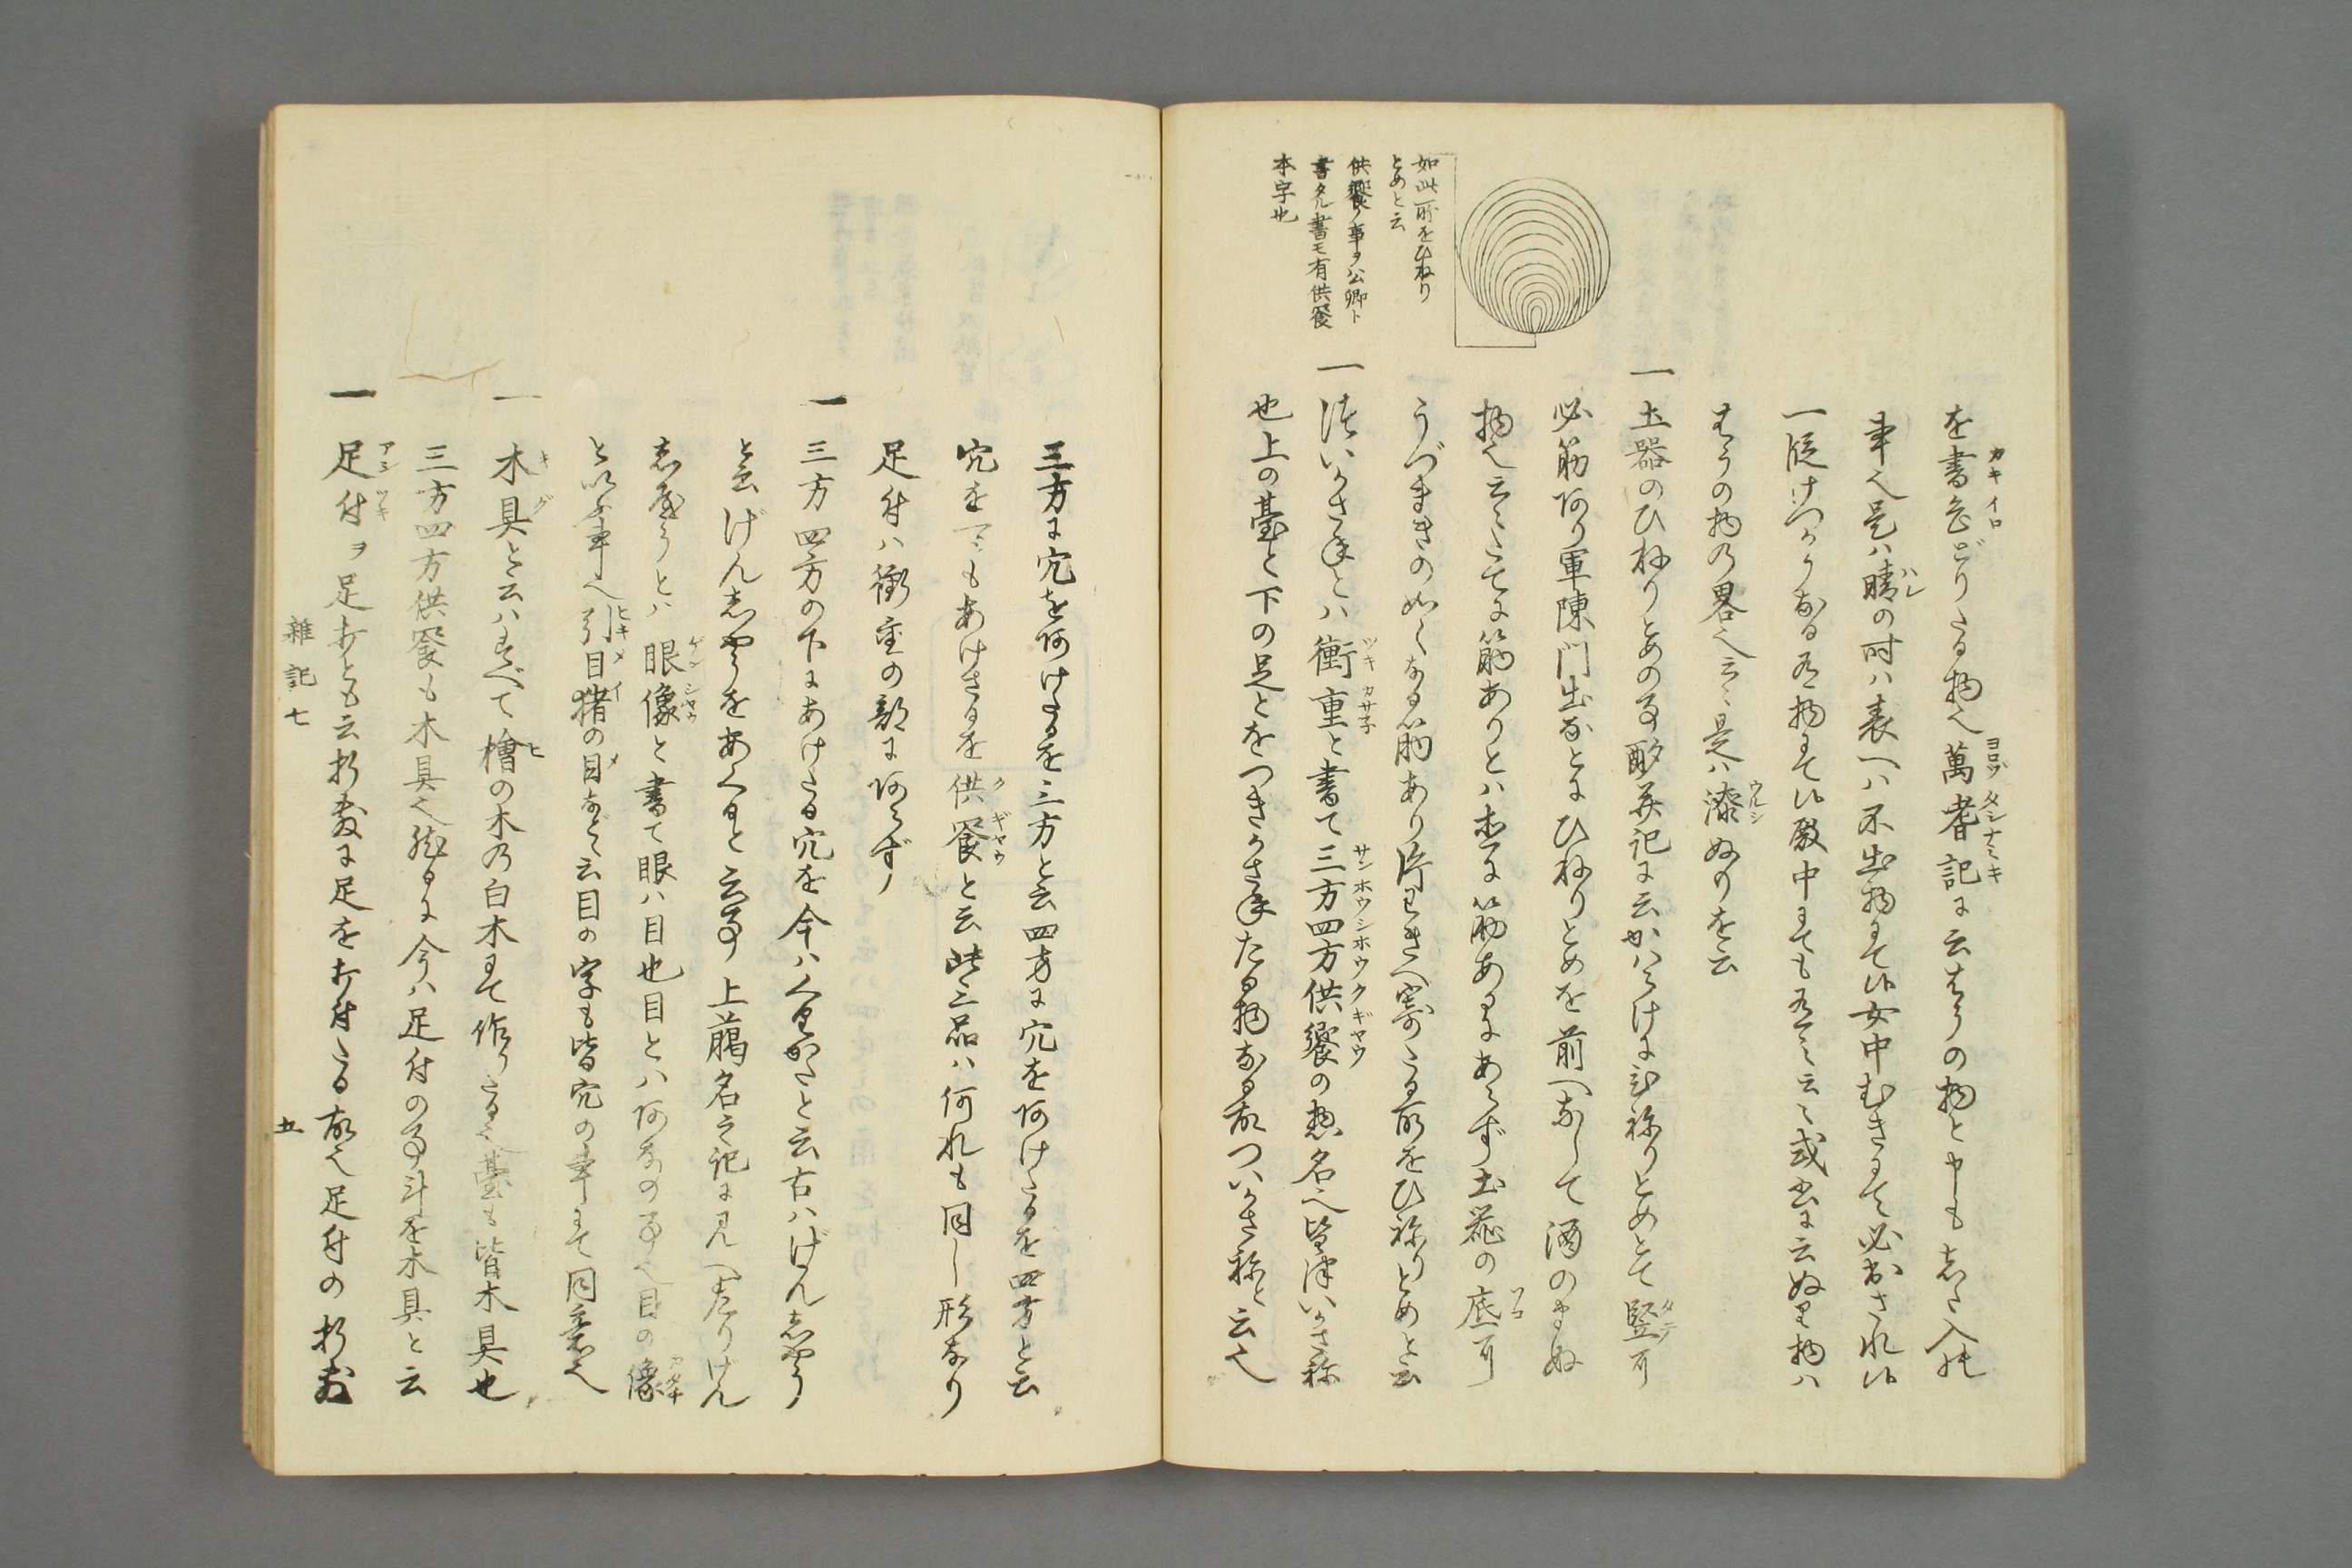 如此所をひねり
とめと云
供饗ノ事ヲ公卿ト
書タル書モ有供餐
本字也
を書色どりたる物也萬耆記に云はうの物と申も志た入札
事也是ハ晴の時ハ表へハ不出物にて候女中むきにて必出され候
一段けつかうなる五物にて候殿中にても五と云々或書に云ぬり物ハ
はうの物の畧也云々是ハ漆ぬりを云
一土器のひねりとめの事酌并記に云かハらけにひねりとめとて竪
必筋あり軍陳門出などにひねりとめを前へなして酒のまぬ
物也云々たてに筋ありとハ忠に筋あるにあらず土器の底に
うづまきの如くなる筋あり片わきへ寄たる所をひねりとめと云
一ついかさねとハ衝重と書て三方四方供饗の惣名也皆ついかさね
也上の臺と下の足とをつきかさねたる物なる故ついかさねと云也
三方に穴をあけたるを三方と云四方に穴をあけたるを四方と云
穴を一ツもあけざるを供餐と云此三品ハ何れも同し形なり
足付ハ衝重の部にあらず
一三方四方の下にあけたる穴を今ハくりかたと云古ハげん志やう
と云げん志やうをあくると云事上﨟名之記に見へたりげん
志やうとハ眼像と書て眼ハ目也目とハあなの事也目の像
といふ事也引目猪の目など云目の字も皆穴の事にて同意也
一木具と云ハすべて檜の木の白木にて作りたる也臺も皆木具也
三方四方供餐も木具也然るに今ハ足付の事斗を木具と云
一足付ヲ足打とも云折敷に足を打付たる故也足付の折敷
雜記七
五